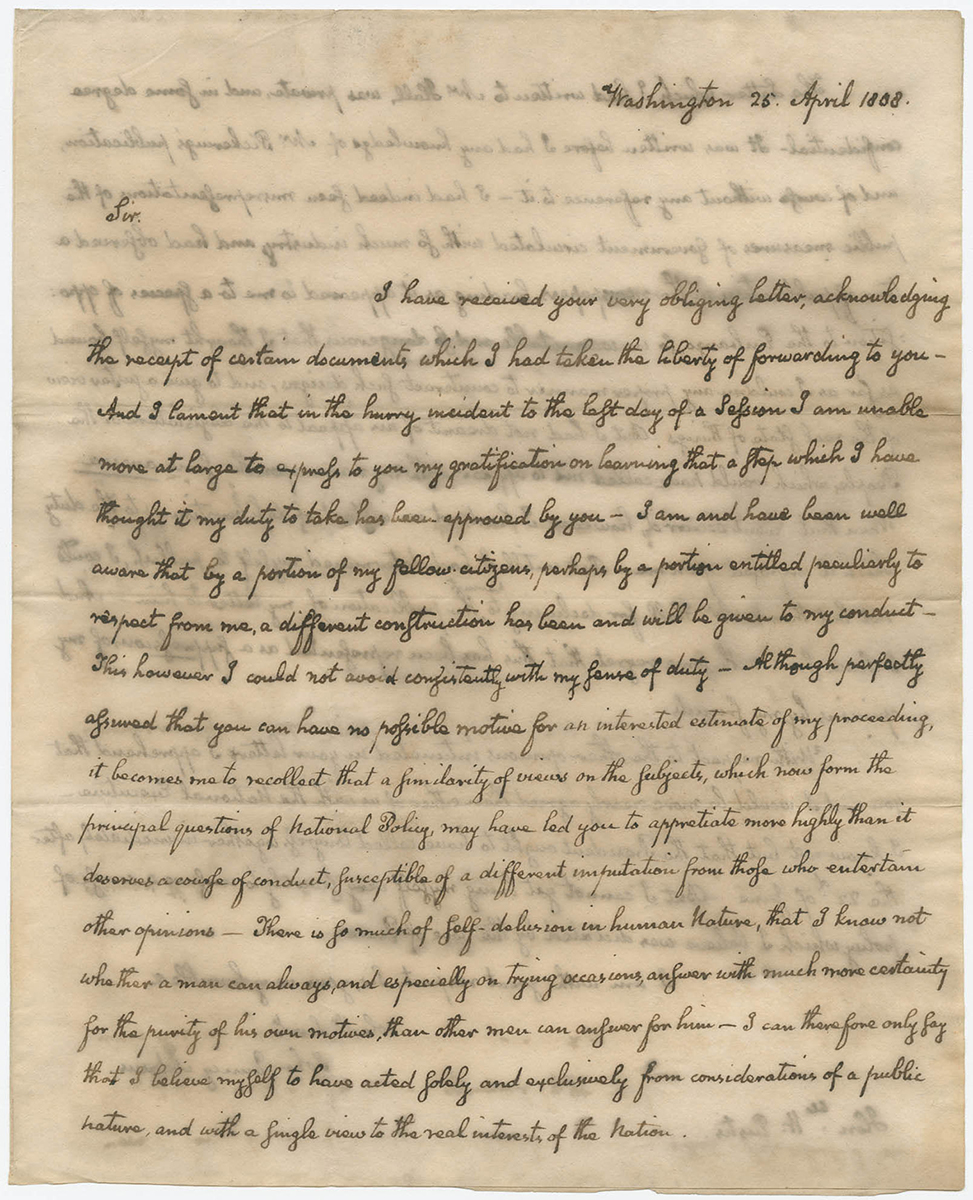 Washington 25. April 1808.
Sir.
I have received your very obliging letter, acknowledging
the receipt of certain documents, which I had taken the liberty of forwarding to you —
And I lament that in the hurry incident to the last day of a Session I am unable
more at large to express to you my gratification on learning that a step which I have
thought it my duty to take has been approved by you — I am and have been well
aware that by a portion of my fellow-citizens, perhaps by a portion entitled peculiarly to
respect from me, a different construction has been and will be given to my conduct —
This however I could not avoid consistently with my sense of duty — Although perfectly
assured that you can have no possible motive for an interested estimate of my proceeding,
it becomes me to recollect that a similarity of views on the subjects, which now form the
principal questions of National Policy, may have led you to appretiate more highly than it
deserves a course of conduct, susceptible of a different imputation from those who entertain
other opinions — There is so much of self-delusion in human Nature, that I know not
whether a man can always, and especially on trying occasions, answer with much more certainty
for the purity of his own motives, than other men can answer for him — I can therefore only say
that I believe myself to have acted solely and exclusively from considerations of a public
nature, and with a single view to the real interests of the Nation.